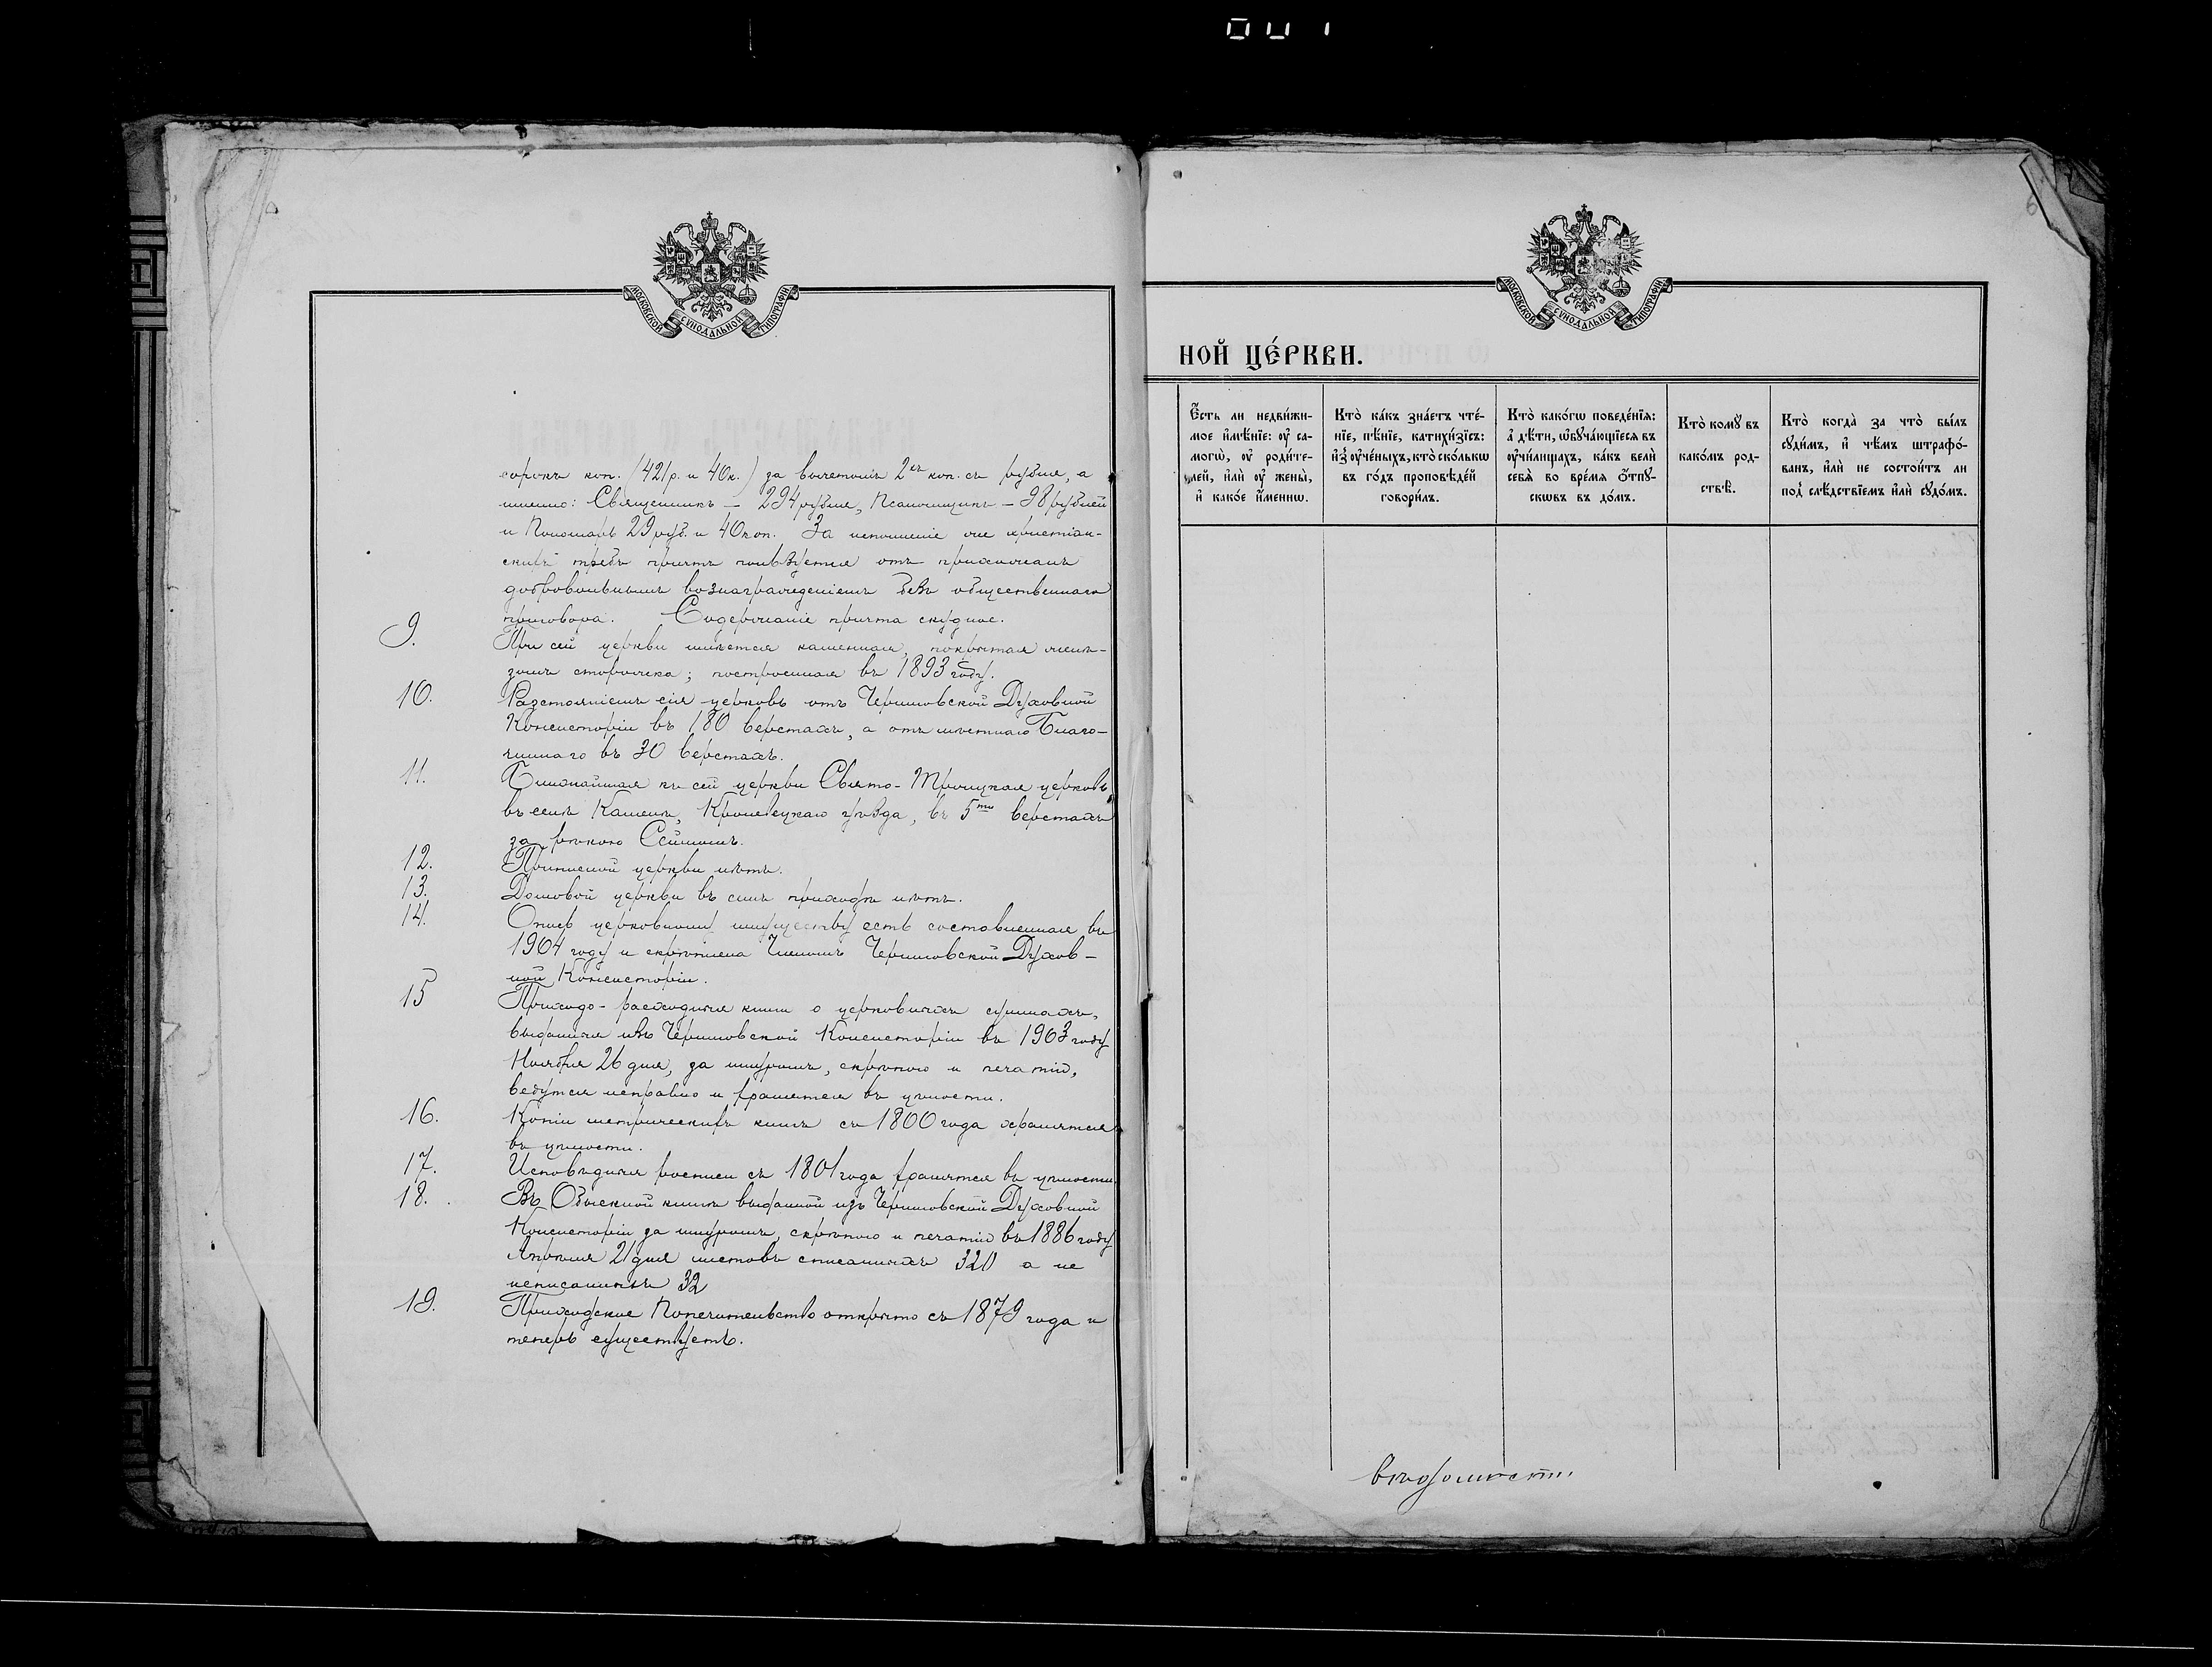 МОСКОВСКОЙ СѴНОДАЛЬНОЙ ТИПОГРАФІИ
сорокъ коп. (421р. и 40к.) за вычетомъ 2хъ коп. съ рубля, а
именно: Священникъ – 294 рубля, Псаломщикъ – 98 рублей
и Пономарь 29 руб. и 40 коп. За исполненіе же христіан-
скихъ требъ причтъ пользуется отъ прихожанъ
добровольнымъ вознагражденіемъ безъ общественнаго
приговора. Содержаніе причта скудное.
9. При сей церкви имѣется каменная, покрытая желѣ-
зомъ сторожка; построенная въ 1893 году.
10. Разстояніемъ сія церковь отъ Черниговской Духовной
Консисторіи въ 180 верстахъ, а отъ мѣстнаго Благо-
чиннаго въ 30 верстахъ.
11. Ближайшая къ сей церкви Свято-Троицкая церковь
въ селѣ Камень, Кролевецкаго уѣзда, въ 5ти верстахъ
за рѣкою Сеймомъ.
12. Приписной церкви нѣтъ.
13. Домовой церкви въ семъ приходѣ нѣтъ.
14. Опись церковному имуществу есть составленная въ
1904 году и скрѣплена Членомъ Черниговской Духов-
ной Консисторіи.
15 Приходо-расходныя книги о церковныхъ суммахъ,
выданныя изъ Черниговской Консисторіи въ 1903 году
Ноября 26 дня, за шнуромъ, скрѣпою и печатію,
ведутся исправно и хранятся въ цѣлости.
16. Копіи метрическихъ книгъ съ 1800 года хранятся
въ цѣлости.
17. Исповѣдныя росписи съ 1801 года хранятся въ цѣлости.
18. Въ Обыскной книгѣ выданной изъ Черниговской Духовной
Консисторіи за шнуромъ, скрѣпою и печатію въ 1886 году
Апрѣля 21 дня листовъ списанныхъ 320 а не
исписанныхъ 32
19. Приходское Попечительство открыто съ 1879 года и
теперь существуетъ.
МОСКОВСКОЙ СѴНОДАЛЬНОЙ ТИПОГРАФІИ
НОЙ ЦЕ́РКВИ.
Е҆́сть ли недви́жи-
мое и҆мѣ́нїе: ᲂу҆ са-
могѡ̀, ᲂу҆ роди́те-
лей, и҆лѝ ᲂу҆ жены̀,
и҆ како́е и҆́меннѡ.
Кто̀ ка́къ зна́етъ чте́-
нїе, пѣ́нїе, катихи́зїсъ:
и҆з̾ ᲂу҆че́ныхъ, кто̀ ско́лькѡ
въ го́дъ проповѣ́дей
говори́лъ.
Кто̀ како́гѡ поведе́нїѧ:
а҆ дѣ́ти, ѡ҆бꙋча́ющїесѧ въ
ᲂу҆чи́лищахъ, ка́къ велѝ
себѧ̀ во вре́мѧ ѿпꙋ-
скѡвъ въ до́мъ.
Кто̀ комꙋ̀ въ
како́мъ род-
ствѣ̀.
Кто̀ когда̀ за что̀ бы́лъ
сꙋди́мъ, и҆ чѣ́мъ штрафо́-
ванъ, и҆лѝ не состои́тъ ли
под̾ слѣ́дствїемъ и҆лѝ сꙋдо́мъ.